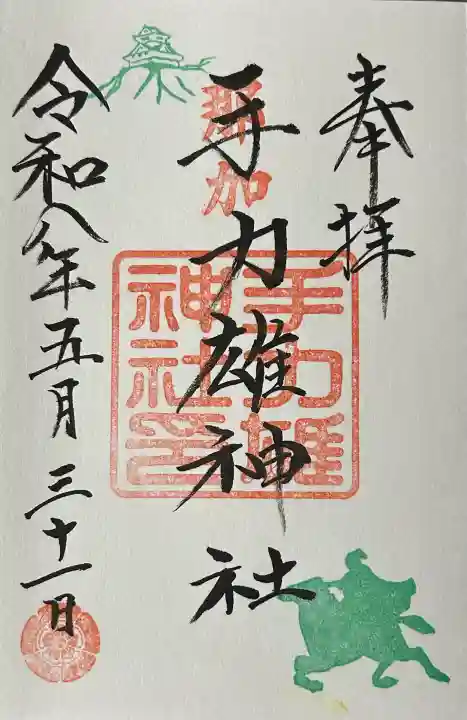 奉拝
那加
手力雄神社
手力雄
神社印
令和八年五月三十一日